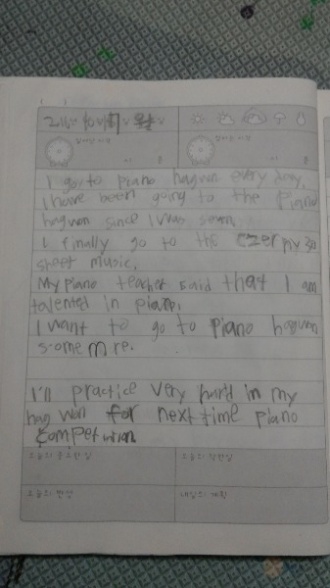 I go to piano hagwon every day.
I have been going to the piano
hagwon since I was seven.
I finally go to the czerny 30
sheet music.
My piano teacher said that I am
talented in piano.
I want to go to piano hagwon
some more.
I'll practice very hard in my
hag won for next time piano
competition
오늘의 중요한 일
오늘의 착한일
오늘의 반성
내일의 계획